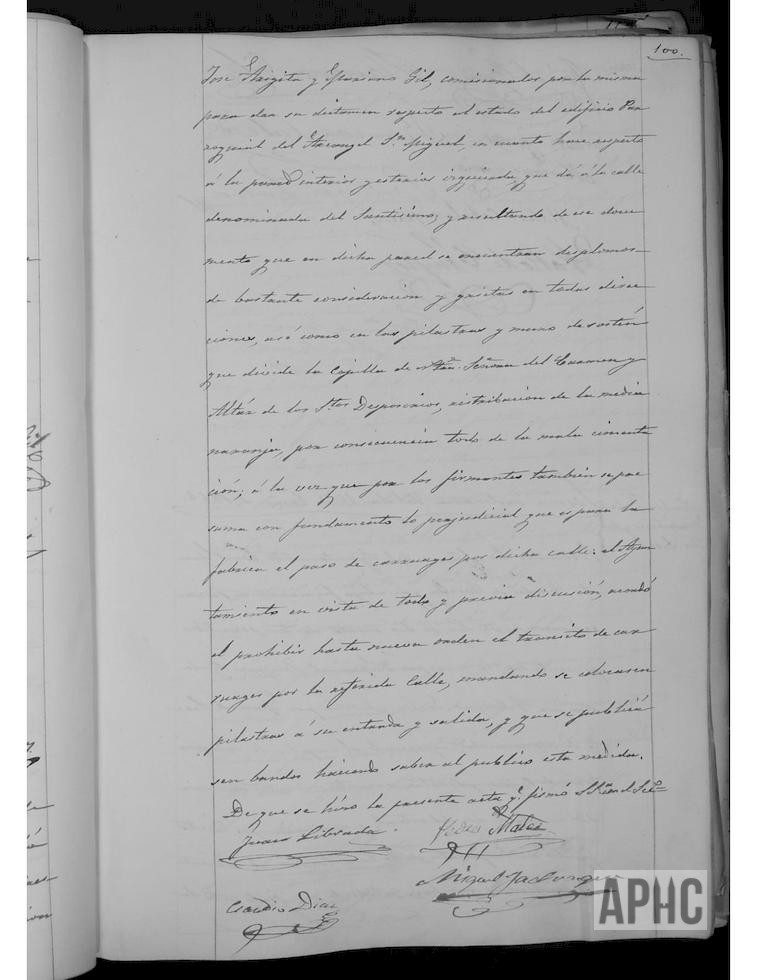 100.
José Azizita y Mariano Gil, comisionados por la misma
para dar su dictamen respecto el estado del edificio Par
roquial del Arcangel Sn. Miguel en cuanto hace respecto
á la pared interior y esterior izquierda que dá á la calle
denominada del Santisimo; y resultando de ese docu
mento que en dicha pared se encuentran desplomos
de bastante consideracion y grietas en todas direc
ciones, asi como en las pilastras y muro de sostén
que divide la Capilla de Ntra. Señora del Carmen y
Altár de los Stos Desposorios, restribacion de la media
naranja, por consecuencia todo de la mala cimenta
ción; á la vez que por los firmantes tambien se pre
suma con fundamento lo perjudicial que es para la
fabrica el paso de carruages por dicha calle: el Ayun
tamiento en vista de todo y previa discusión, acordó
el prohibir hasta nueva orden el transito de car
ruages por la referida Calle, mandando se colocasen
pilastras á su entrada y salida, y que se publicá
sen bandos haciendo saber al publico esta medida.
De que se hizo la presente acta q. firmó el
Juan Librada.
Pedro Mateo
Miguel
Claudio Diaz
APHC